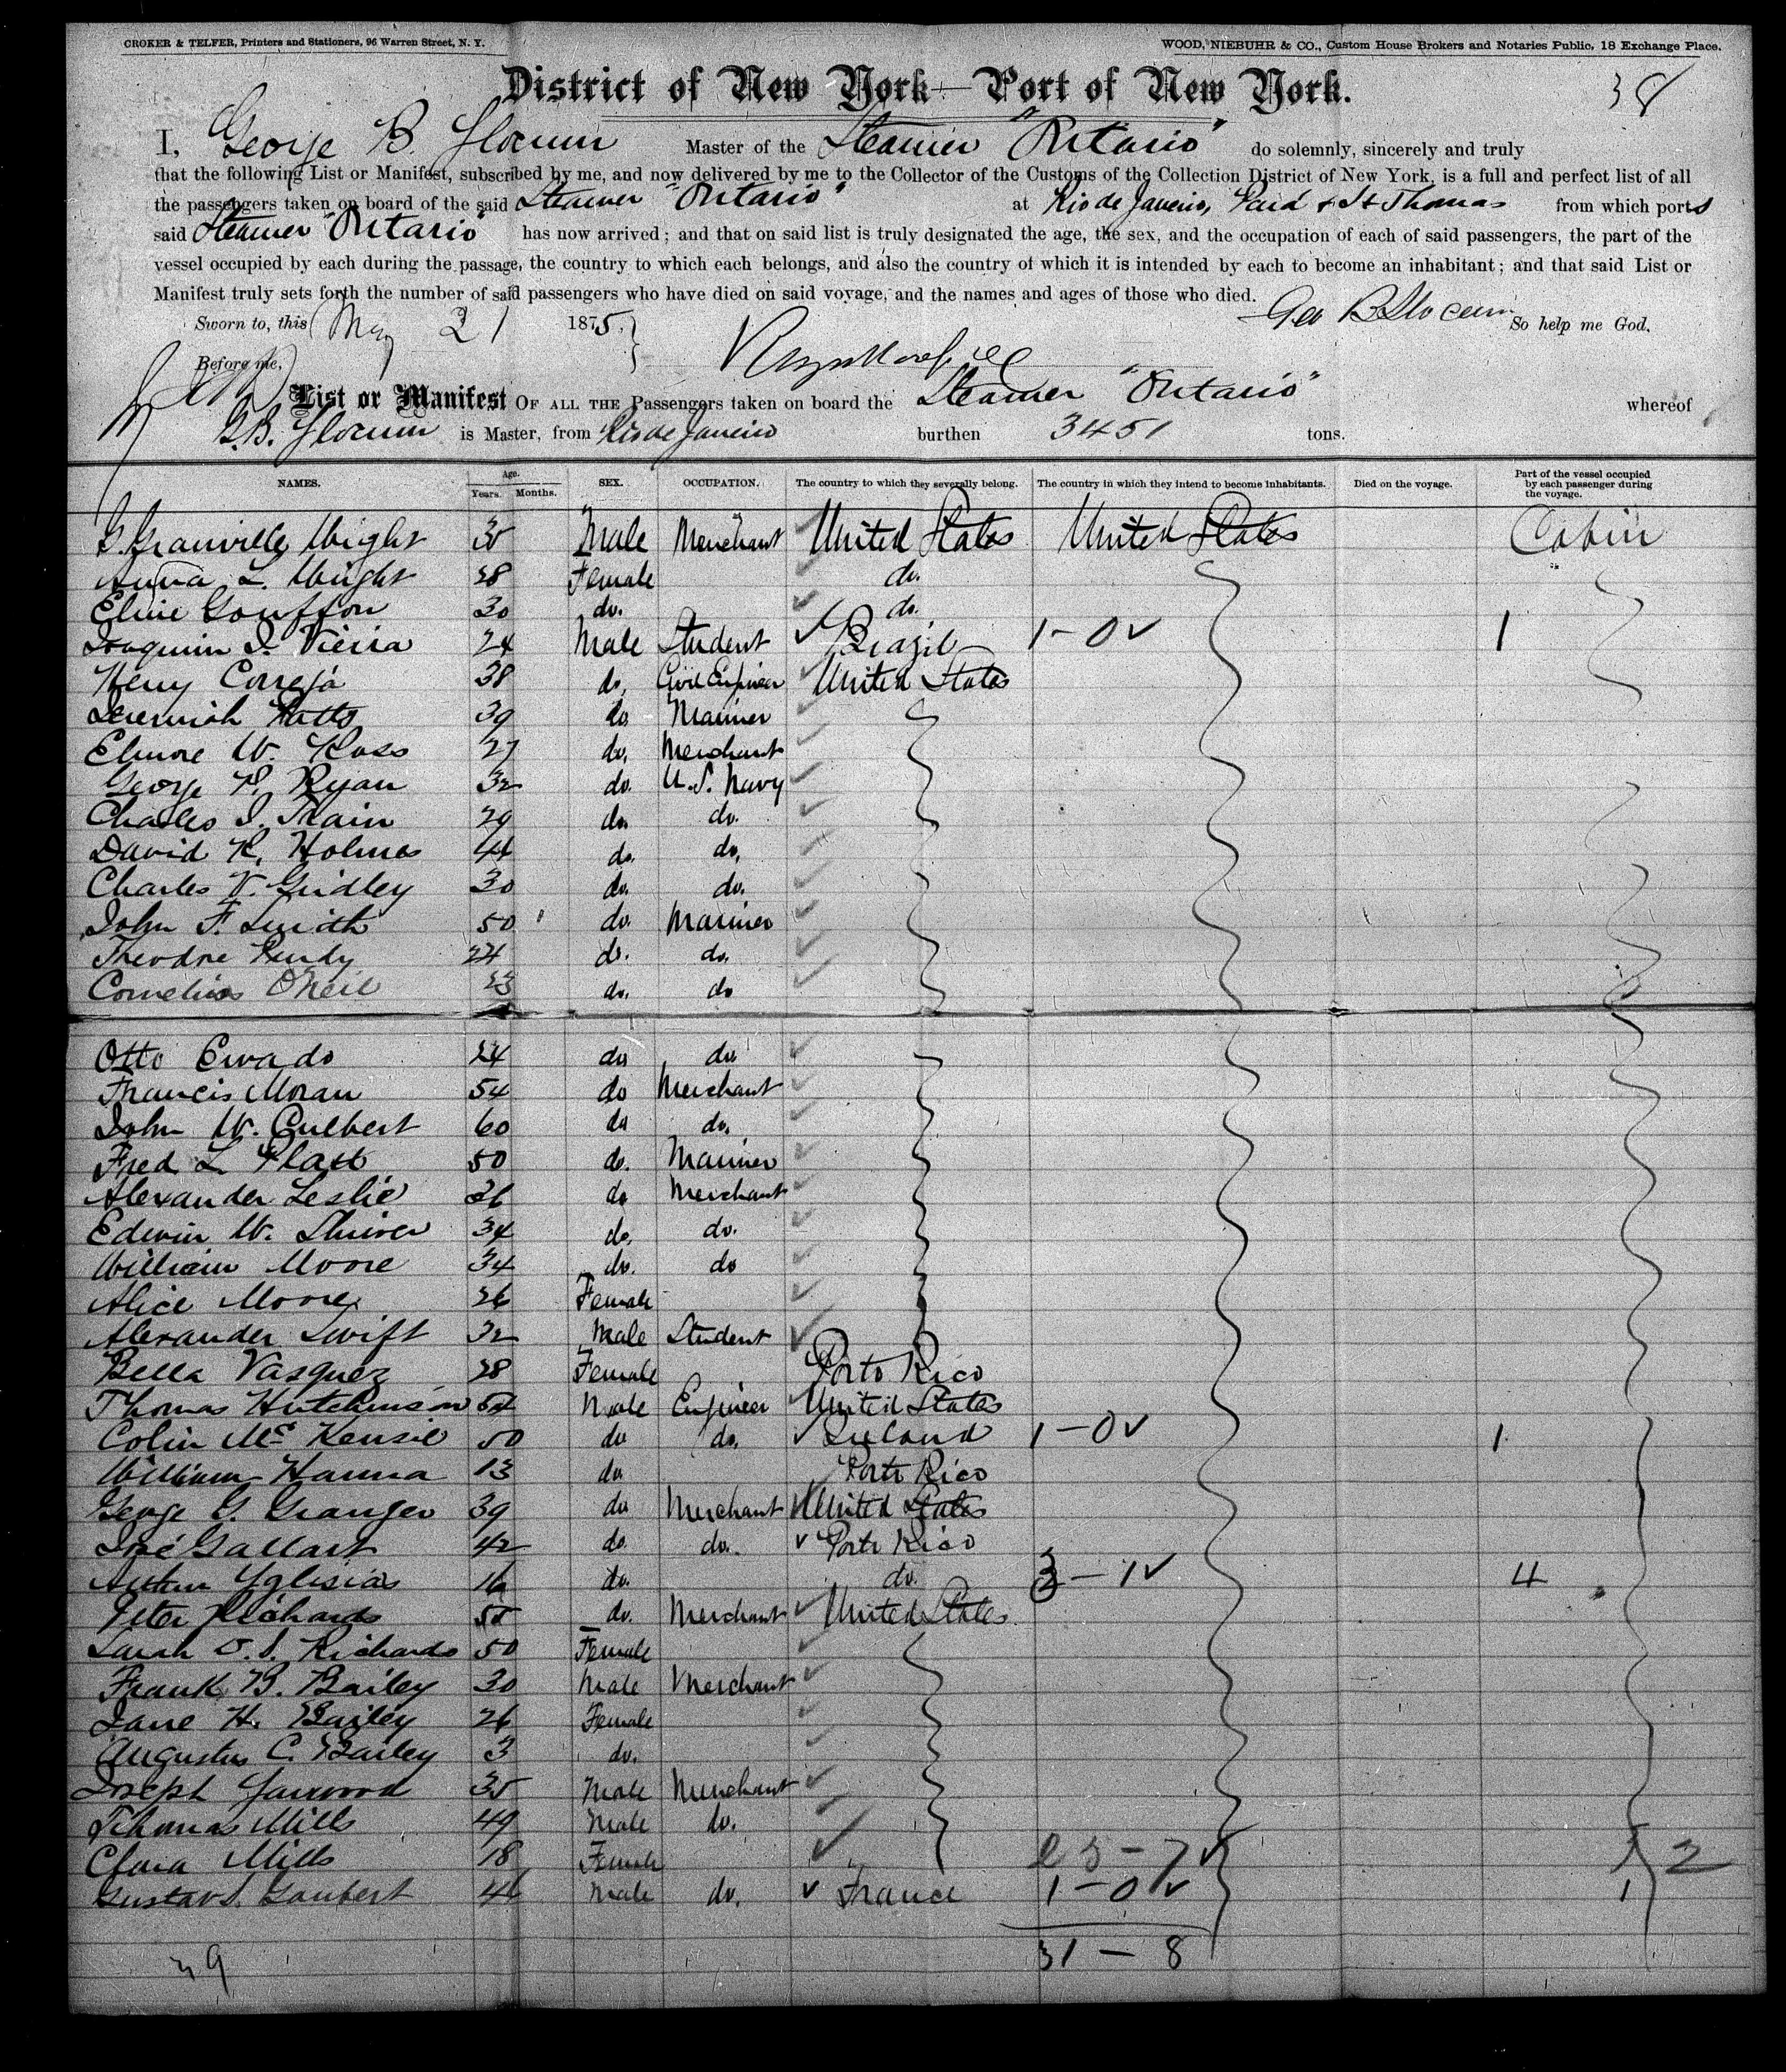 CROKER & TELFER, Printers and Stationers, 96 Warren Street, N. Y. WOOD, NIEBUHR & CO., Custom House Brokers and Notaries Public, 18 Exchange Place.
District of New York—Port of New York.
38
I, George B. Slocum Master of the Steamer "Ontario" do solemnly, sincerely and truly
that the following List or Manifest, subscribed by me, and now delivered by me to the Collector of the Customs of the Collection District of New York, is a full and perfect list of all
the passengers taken on board of the said Steamer "Ontario" at Rio de Janeiro, Para & St Thomas from which ports
said Steamer "Ontario" has now arrived; and that on said list is truly designated the age, the sex, and the occupation of each of said passengers, the part of the
vessel occupied by each during the passage, the country to which each belongs, and also the country of which it is intended by each to become an inhabitant; and that said List or
Manifest truly sets forth the number of said passengers who have died on said voyage, and the names and ages of those who died.
Geo B Slocum So help me God.
Sworn to, this May 21 1875.
Before me,
List or Manifest OF ALL THE Passengers taken on board the Steamer "Ontario" whereof
G.B. Slocum is Master, from Rio de Janeiro burthen 3451 tons.
NAMES. Age. Years. Months. SEX. OCCUPATION. The country to which they severally belong. The country in which they intend to become inhabitants. Died on the voyage. Part of the vessel occupied by each passenger during the voyage.
G. Granville Wright 35 Male Merchant United States United States Cabin
Anna L. Wright 28 Female do.
Elise Gouffon 30 do. do.
Joaquim J. Vieira 24 Male Student Brazil 1-0 1
Henry Correja 38 do. Civil Engineer United States
Jeremiah Watts 39 do Mariner
Elmore W. Ross 27 do. Merchant
George P. Ryan 32 do. U.S. Navy
Charles J. Train 29 do. do.
David R. Holmes 44 do. do.
Charles V. Gridley 30 do. do.
John F. Smith 50 do. Mariner
Theodre 24 do. do.
Cornelius O'Neil 23 do. do
Otto Ewado 24 do do
Francis Moran 54 do Merchant
John W. Culbert 60 do do.
Fred L Platt 50 do. Mariner
Alexander Leslie 26 do Merchant
Edwin W. Shriver 34 do. do.
William Moore 34 do. do
Alice Moore 26 Female
Alexander Swift 32 Male Student
Bella Vasquez 28 Female Porto Rico
Thomas Hutchinson 54 Male Engineer United States
Colin McKensie 50 do do. Ireland 1-0 1
William Hanna 13 do Porto Rico
George G. Granger 39 do Merchant United States
José Gallart 42 do. do. Porto Rico
Arthur Yglesias 16 do. do. 3-1 4
Peter Richards 55 do. Merchant United States
Sarah O. S. Richards 50 Female
Frank B. Bailey 30 Male Merchant
Jane H. Bailey 26 Female
Augustus C. Bailey 3 do.
Joseph Yarwood 35 Male Merchant
Thomas Mills 49 Male do.
Clara Mills 18 Female 25-7 2
Gustav S. Goubert 46 Male do. France 1-0 1
39 31-8